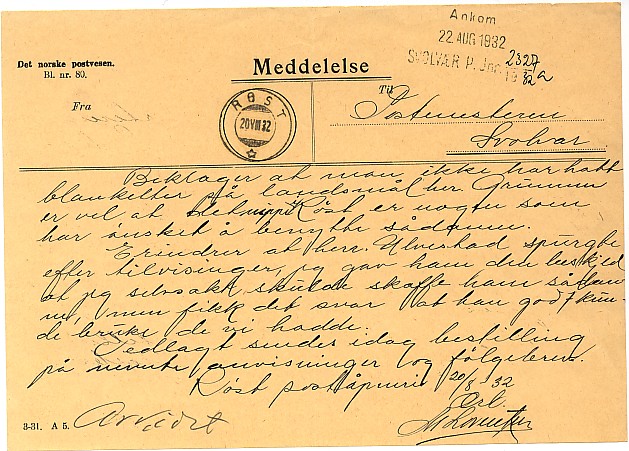 Ankom
22 AUG 1932
SVOLVÆR P. Jnr. 19
2327
32 a
Det norske postvesen.
Bl. nr. 80.
Meddelelse
Fra
Til
RØST
20 VIII 32
Postmesteren
Svolvær
Beklager at man ikke har hatt
blanketter på landsmål her. Grunnen
er vel at Røst er nogen som
har ønsket å benytte sådanne.
Erindrer at herr Ulvestad spurgte
efter tilvisinger, jeg gav ham den beskjed
at jeg selvsakt skulde skaffe ham sådan
ne, men fikk det svar at han godt kun-
de bruke de vi hadde.
Vedlagt sendes idag bestilling
på nevnte anvisninger og følgebrev.
Røst poståpneri 20/8 - 32
Arkivert
3-31. A 5.